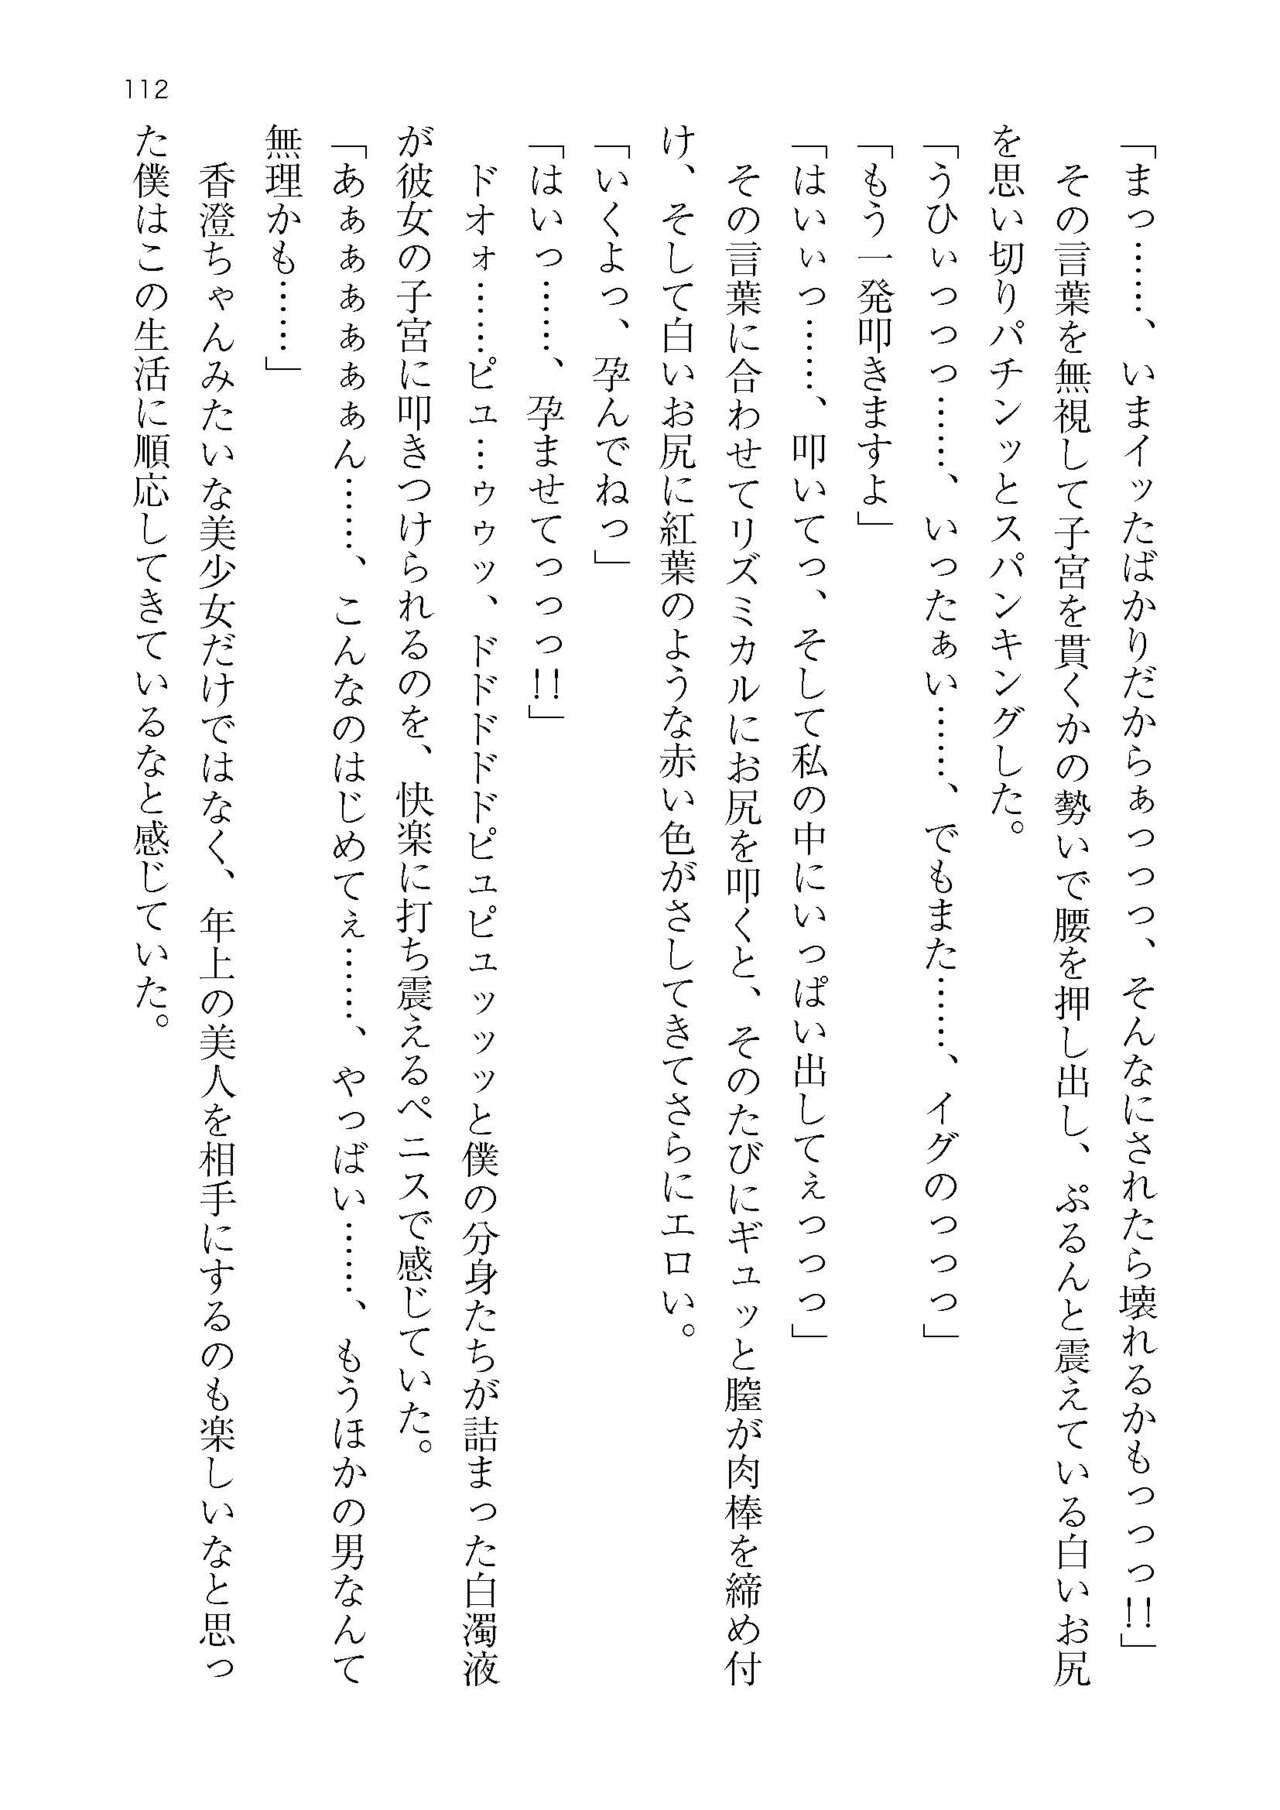 112
「まっ……、いまイッたばかりだからぁっっっ、そんなにされたら壊れるかもっっっ!!」
その言葉を無視して子宮を貫くかの勢いで腰を押し出し、ぷるんと震えている白いお尻
を思い切りパチンッとスパンキングした。
「うひぃっっっ……、いったぁい……、でもまた……、イグのっっっ」
「もう一発叩きますよ」
「はいぃっ……、叩いてっ、そして私の中にいっぱい出してぇっっっ」
その言葉に合わせてリズミカルにお尻を叩くと、そのたびにギュッと膣が肉棒を締め付
け、そして白いお尻に紅葉のような赤い色がさしてきてさらにエロい。
「いくよっ、孕んでねっ」
「はいっ……、孕ませてっっっ!!」
ドオォ……ピュ…ゥゥッ、ドドドドドピュピュッッッと僕の分身たちが詰まった白濁液
が彼女の子宮に叩きつけられるのを、快楽に打ち震えるペニスで感じていた。
「あぁぁぁぁぁぁん……、こんなのはじめてぇ……、やっばい……、もうほかの男なんて
無理かも……」
香澄ちゃんみたいな美少女だけではなく、年上の美人を相手にするのも楽しいなと思っ
た僕はこの生活に順応してきているなと感じていた。